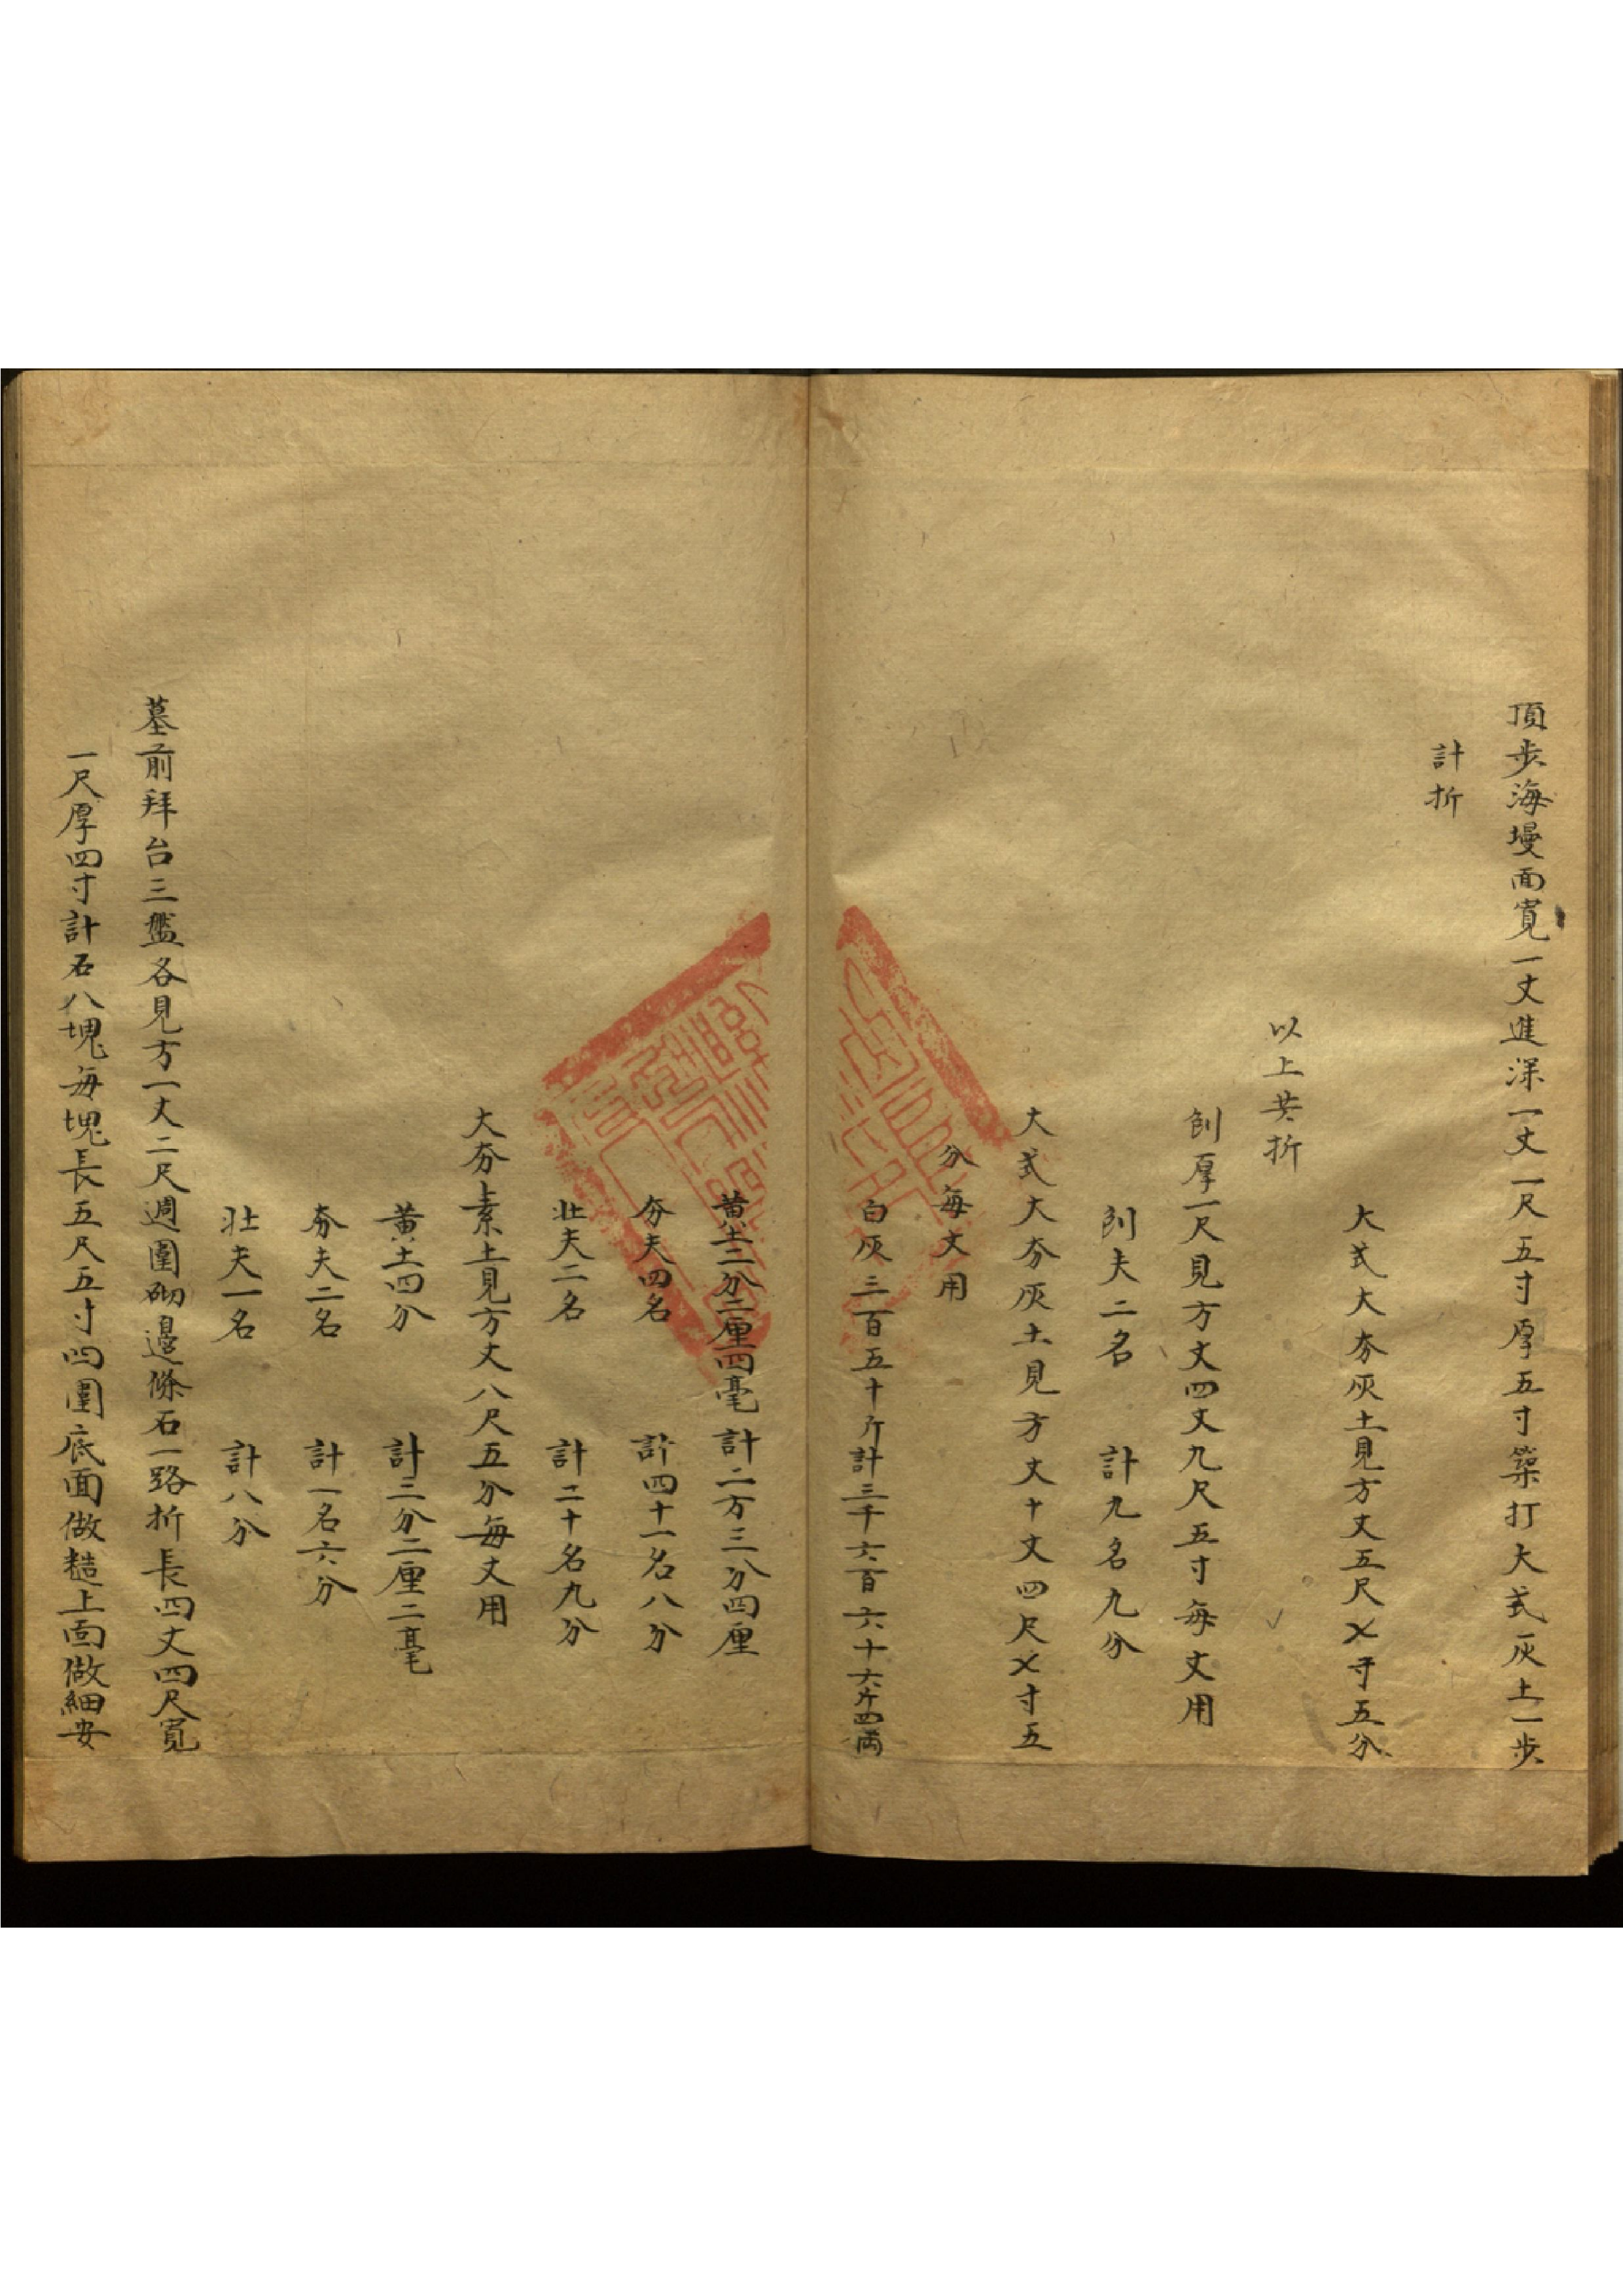 頂步海墁面寬一丈進深一丈一尺五寸厚五寸築打大式灰土一步
計折
大式大夯灰土見方丈五尺〤寸五分
以上共折
刨厚一尺見方丈四丈九尺五寸每丈用
刨夫二名 計九名九分
大式大夯灰土見方丈十丈四尺〤寸五
分每丈用
白灰三百五十斤計三千六百六十六斤四兩
黄土二分二厘四毫 計二方三分四厘
夯夫四名 計四十一名八分
壯夫二名 計二十名九分
大夯素土見方丈八尺五分每丈用
黄土四分 計三分二厘二毫
夯夫二名 計一名六分
壯夫一名 計八分
墓前拜台三盤各見方一丈二尺週圍砌邊條石一路折長四丈四尺寬
一尺厚四寸計石八塊每塊長五尺五寸四圍底面做糙上面做細安